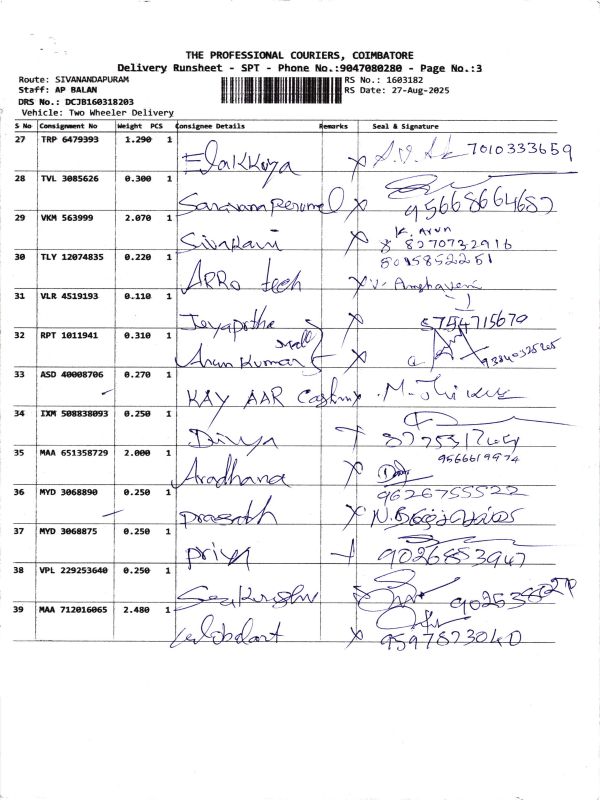 THE PROFESSIONAL COURIERS, COIMBATORE
Delivery Runsheet - SPT - Phone No.:9047080280 - Page No.:3
Route: SIVANANDAPURAM RS No.: 1603182
Staff: AP BALAN RS Date: 27-Aug-2025
DRS No.: DCJB160318203
Vehicle: Two Wheeler Delivery
S No Consignment No Weight PCS Consignee Details Remarks Seal & Signature
27 TRP 6479393 1.290 1 Elakkiya 7010333659
28 TVL 3085626 0.300 1 Saravana Perumal 9566866468
29 VKM 563999 2.070 1 Sivakavi K. Arun 8270732916
30 TLY 12074835 0.220 1 ARRo tech 8015852251
31 VLR 4519193 0.110 1 Jeyapritha 8754715670
32 RPT 1011941 0.310 1 Arun Kumar
33 ASD 40008706 0.270 1 KAY AAR
34 IXM 508838093 0.250 1 Divya
35 MAA 651358729 2.000 1 Aradhana 9566619974
36 MYD 3068890 0.250 1 prasanth 9626755522
37 MYD 3068875 0.250 1 priya 9026853947
38 VPL 229253640 0.250 1
39 MAA 712016065 2.480 1 9597823040